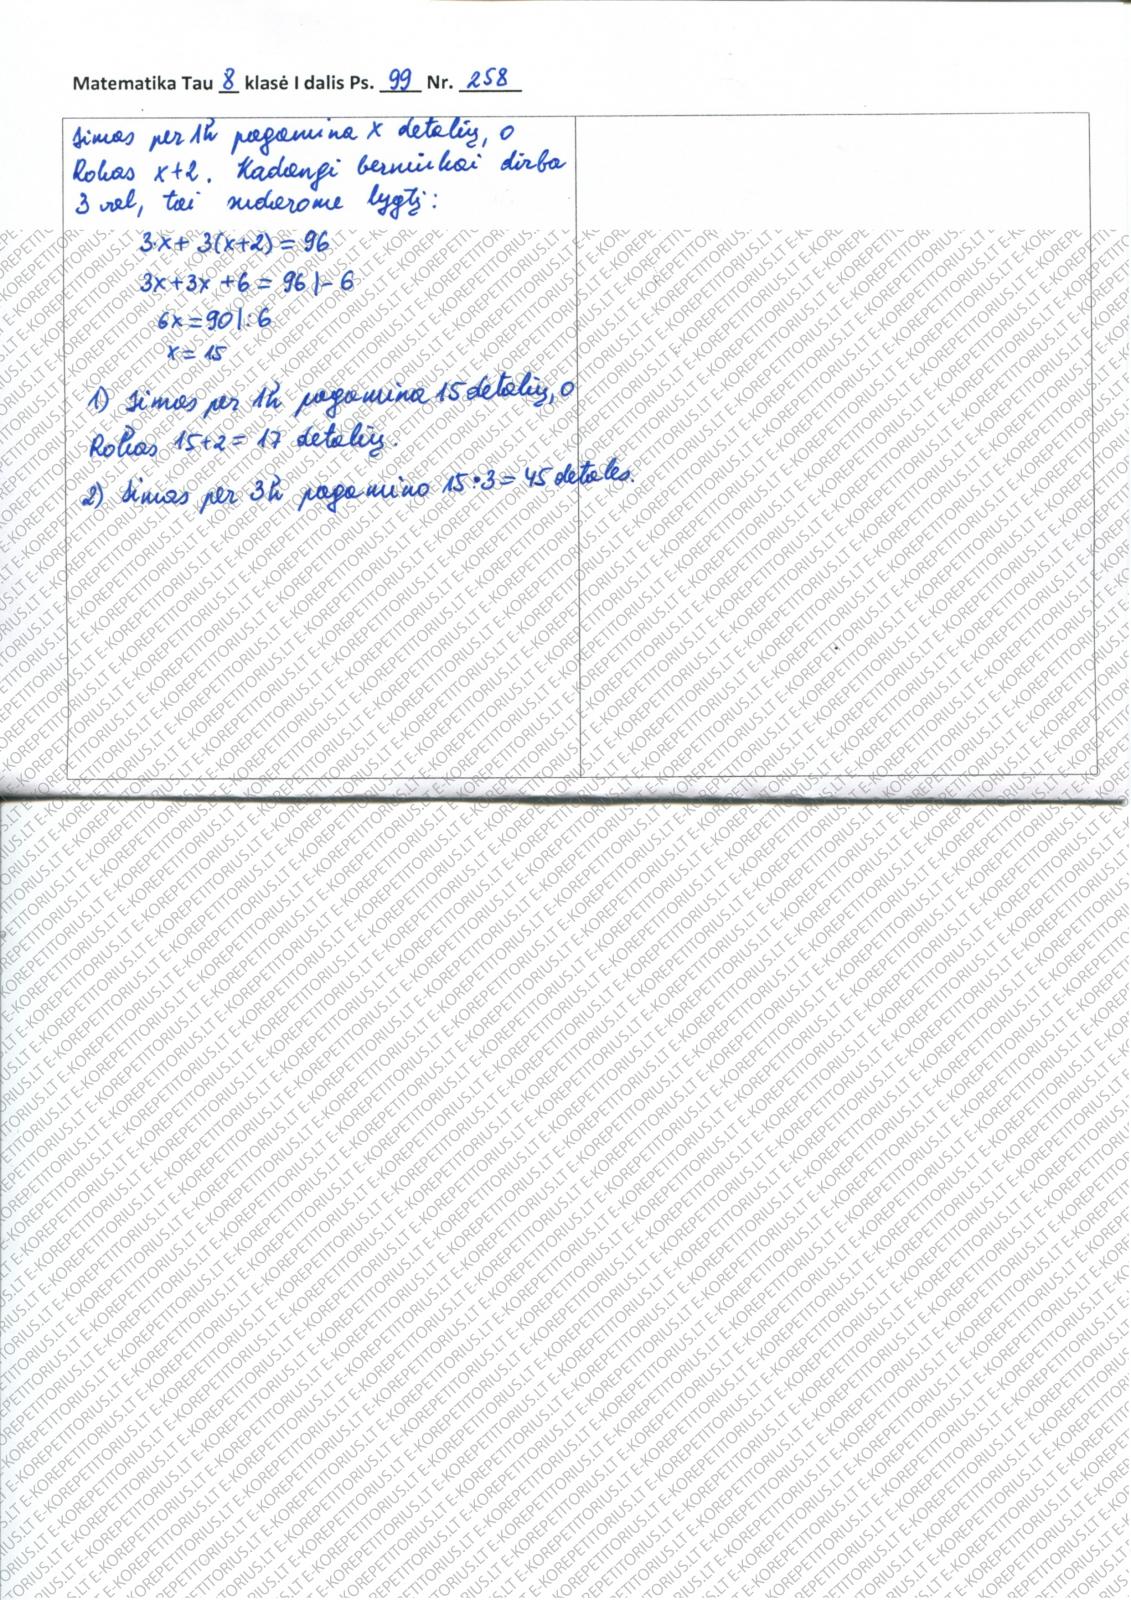 Matematika Tau 8 klasė I dalis Ps. 99 Nr. 258
Simas per 1h pagamina x detalių, o
Rokas x+2. Kadangi berniukai dirba
3 val, tai sudarome lygtį:
3·x+ 3(x+2) = 96
3x+3x +6 = 96 |- 6
6x = 90 |:6
x = 15
1) Simas per 1h pagamina 15 detalių, o
Rokas 15+2 = 17 detalių.
2) Simas per 3h pagamino 15·3 = 45 detales.
E-KOREPETITORIUS.LT